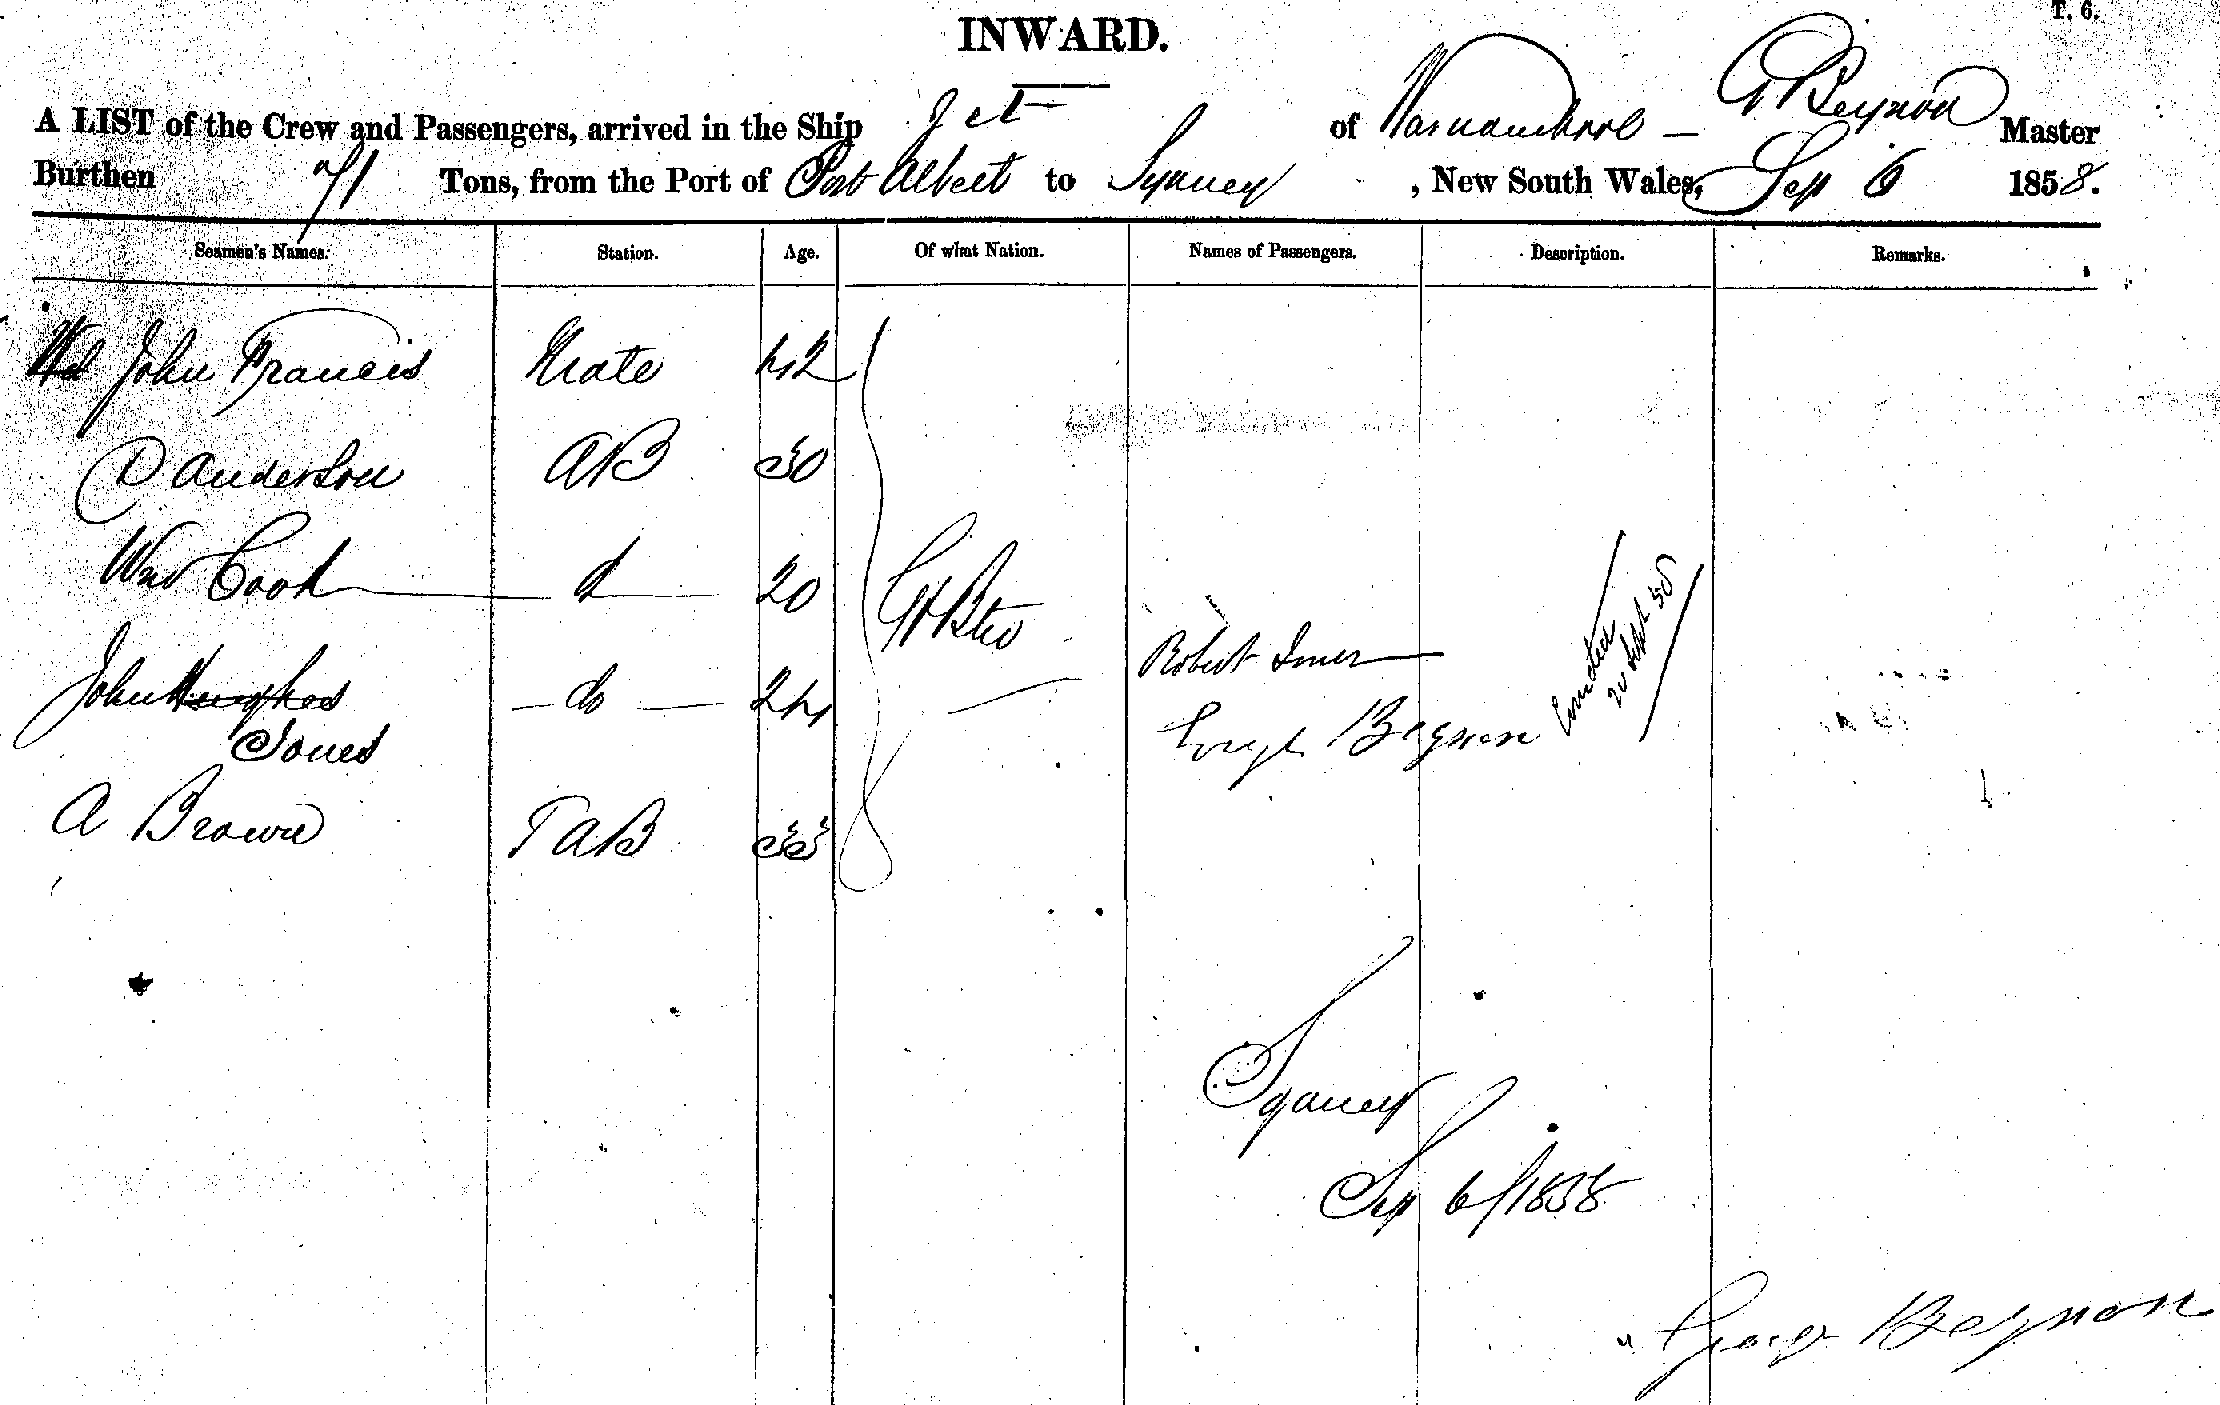 T. 6.
INWARD.
A LIST of the Crew and Passengers, arrived in the Ship Jet of Warnambool - G Beynon Master
Burthen 71 Tons, from the Port of Port Albert to Sydney, New South Wales, Sep 6 1858.
Seamen's Names. Station. Age. Of what Nation. Names of Passengers. Description. Remarks.
John Francis Mate 42
D Anderson AB 30
Wm Cook d 20 Gt Btn
John Hughes do 24 Robert
Jones Beynon
A Brown AB 33
Sydney
Sep 6/1858
George Beynon